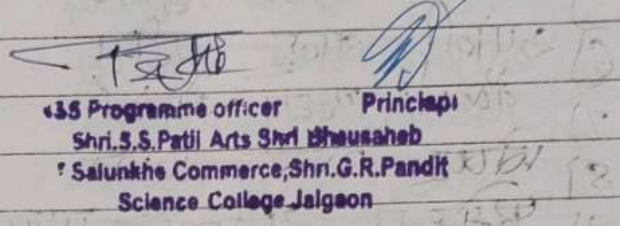 Programme officer Principal
Shri.S.S.Patil Arts Shri Bhausaheb
Salunkhe Commerce,Shri.G.R.Pandit
Science College Jalgaon